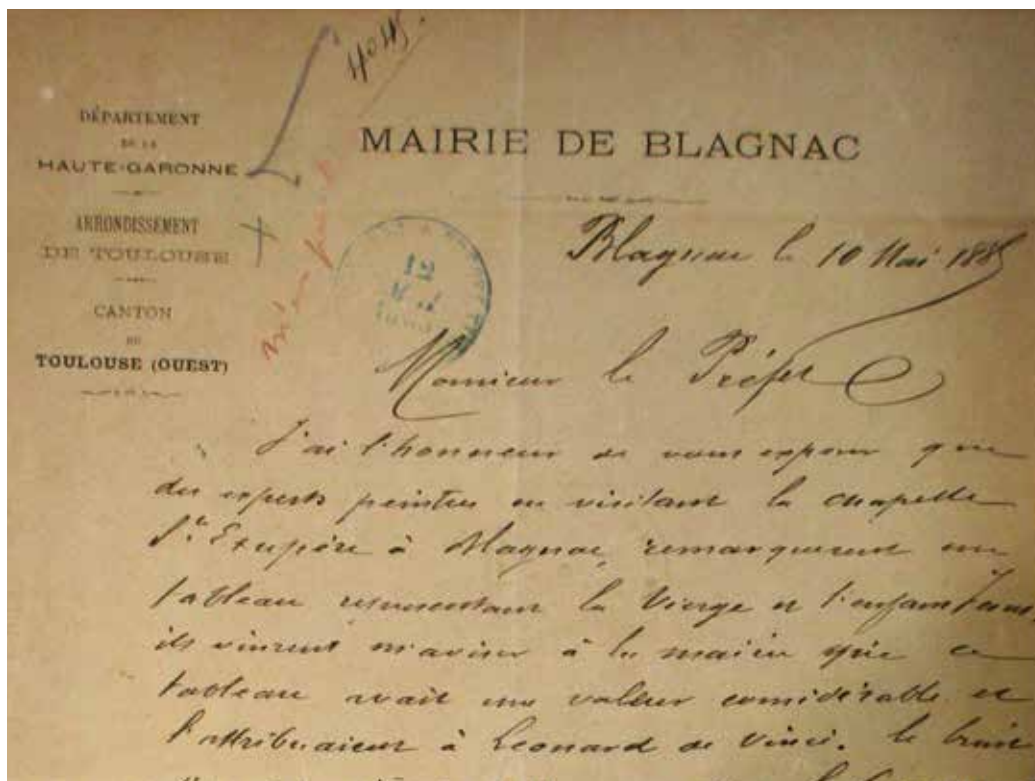 4045.
DÉPARTEMENT
DE LA
HAUTE-GARONNE
ARRONDISSEMENT
DE TOULOUSE
CANTON
DE
TOULOUSE (OUEST)
MAIRIE DE BLAGNAC
12
MAI
Blagnac le 10 Mai 1885
Monsieur le Préfet
J'ai l'honneur de vous exposer que
des experts peintres en visitant la chapelle
St Exupère à Blagnac, remarquerent un
tableau representant la Vierge et l'enfant Jesus
ils vinrent m'aviser à la mairie que ce
tableau avait une valeur considérable et
l'attribuaient à Leonard de Vinci. le bruit